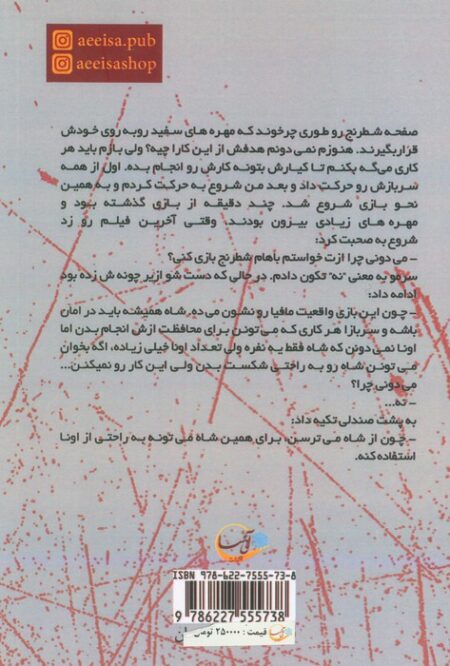 aeeisa.pub
aeeisashop
صفحه شطرنج رو طوری چرخوند که مهره های سفید روبه روی خودش
قرار بگیرند. هنوزم نمی دونم هدفش از این کارا چیه؟ ولی بازم باید هر
کاری می‌گه بکنم تا کیارش بتونه کارش رو انجام بده. اول از همه
سربازش رو حرکت داد و بعد من شروع به حرکت کردم و به همین
نحو بازی شروع شد. چند دقیقه از بازی گذشته بود و
مهره های زیادی بیرون بودند. وقتی آخرین فیلم رو زد
شروع به صحبت کرد:
- می دونی چرا ازت خواستم باهام شطرنج بازی کنی؟
سرمو به معنی "نه" تکون دادم. در حالی که دست شو از زیر چونه ش زده بود
ادامه داد:
- چون این بازی واقعیت مافیا رو نشون می ده. شاه همیشه باید در امان
باشه و سربازا هر کاری که می تونن برای محافظت ازش انجام بدن اما
اونا نمی دونن که شاه فقط یه نفره ولی تعداد اونا خیلی زیاده، اگه بخوان
می تونن شاه رو به راحتی شکست بدن ولی این کار رو نمیکنن...
می دونی چرا؟
- نه...
به پشت صندلی تکیه داد:
- چون از شاه می ترسن، برای همین شاه می تونه به راحتی از اونا
استفاده کنه.
ISBN 978-622-7555-73-8
9 786227 555738
قیمت : ۲۵۰۰۰۰ تومان